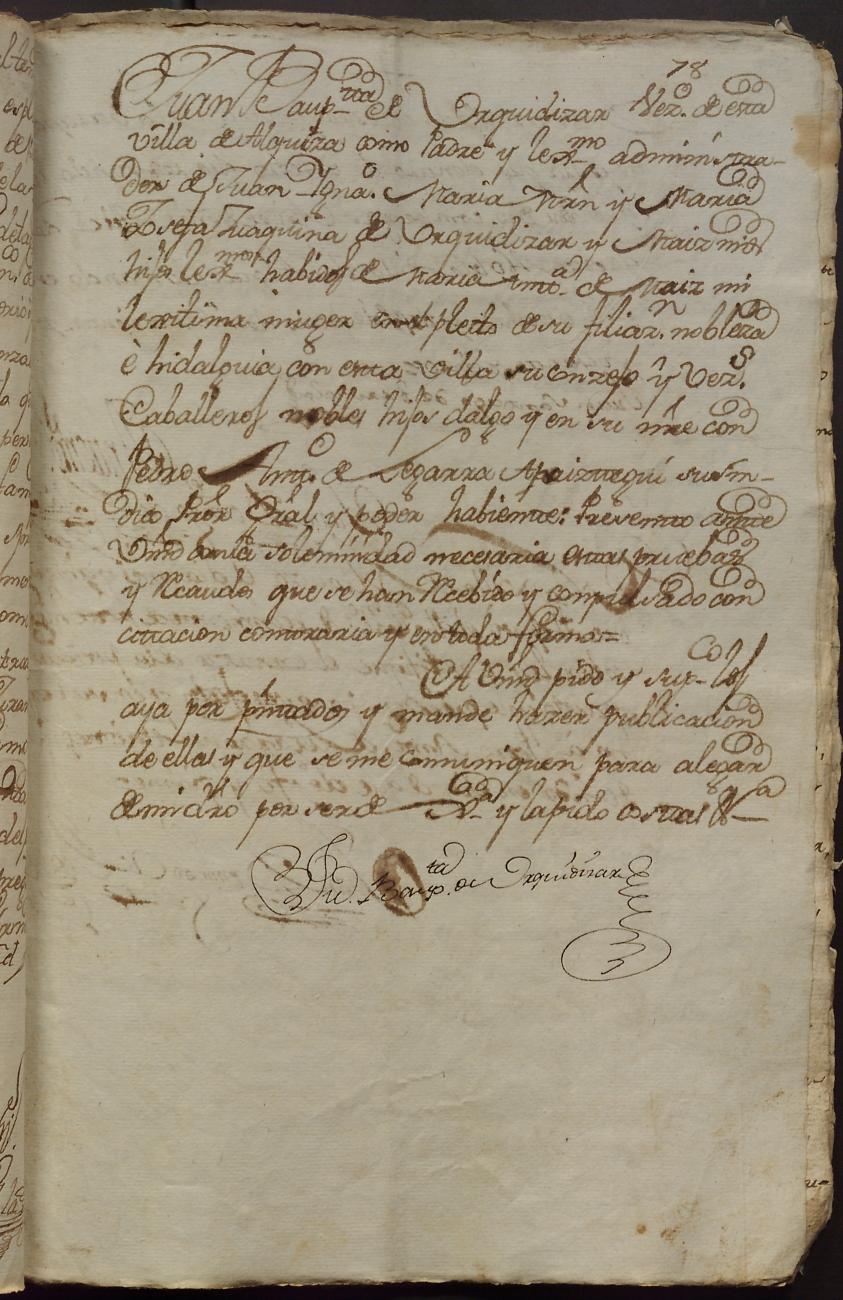 78
Juan Baup.ta de Urquidizar Vez.o de esta
villa de Alquiza como Padre y lex.mo administra-
dor de Juan Igna.o Maria Mrn y Maria
Josefa Juaquina de Urquidizar y Maiz mis
hijos lex.mos habidos de Maria Ant.a de Maiz mi
lexitima muger en el pleito de su filiaz.n nobleza
è hidalguia con esta Villa su conzejo y Vez.s
Caballeros nobles hijos dalgo y en su nre con
Pedro Ant.o de Legarra Apaiztegui su sin-
dico Pror Gral y poder habiente: Presento ante
Vmd con la solemnidad necesaria estas pruebas
y Recaudos que se han Recebido y compulsado con
cittacion contraria y en toda forma=
A Vmd pido y sup.co los
aya por pñtados y mande hazer publicacion
de ellas y que se me comuniquen para alegar
de mi dro por ser de Jus.a y la pido costas &.a
Ju. Baup.ta de Urquidizar